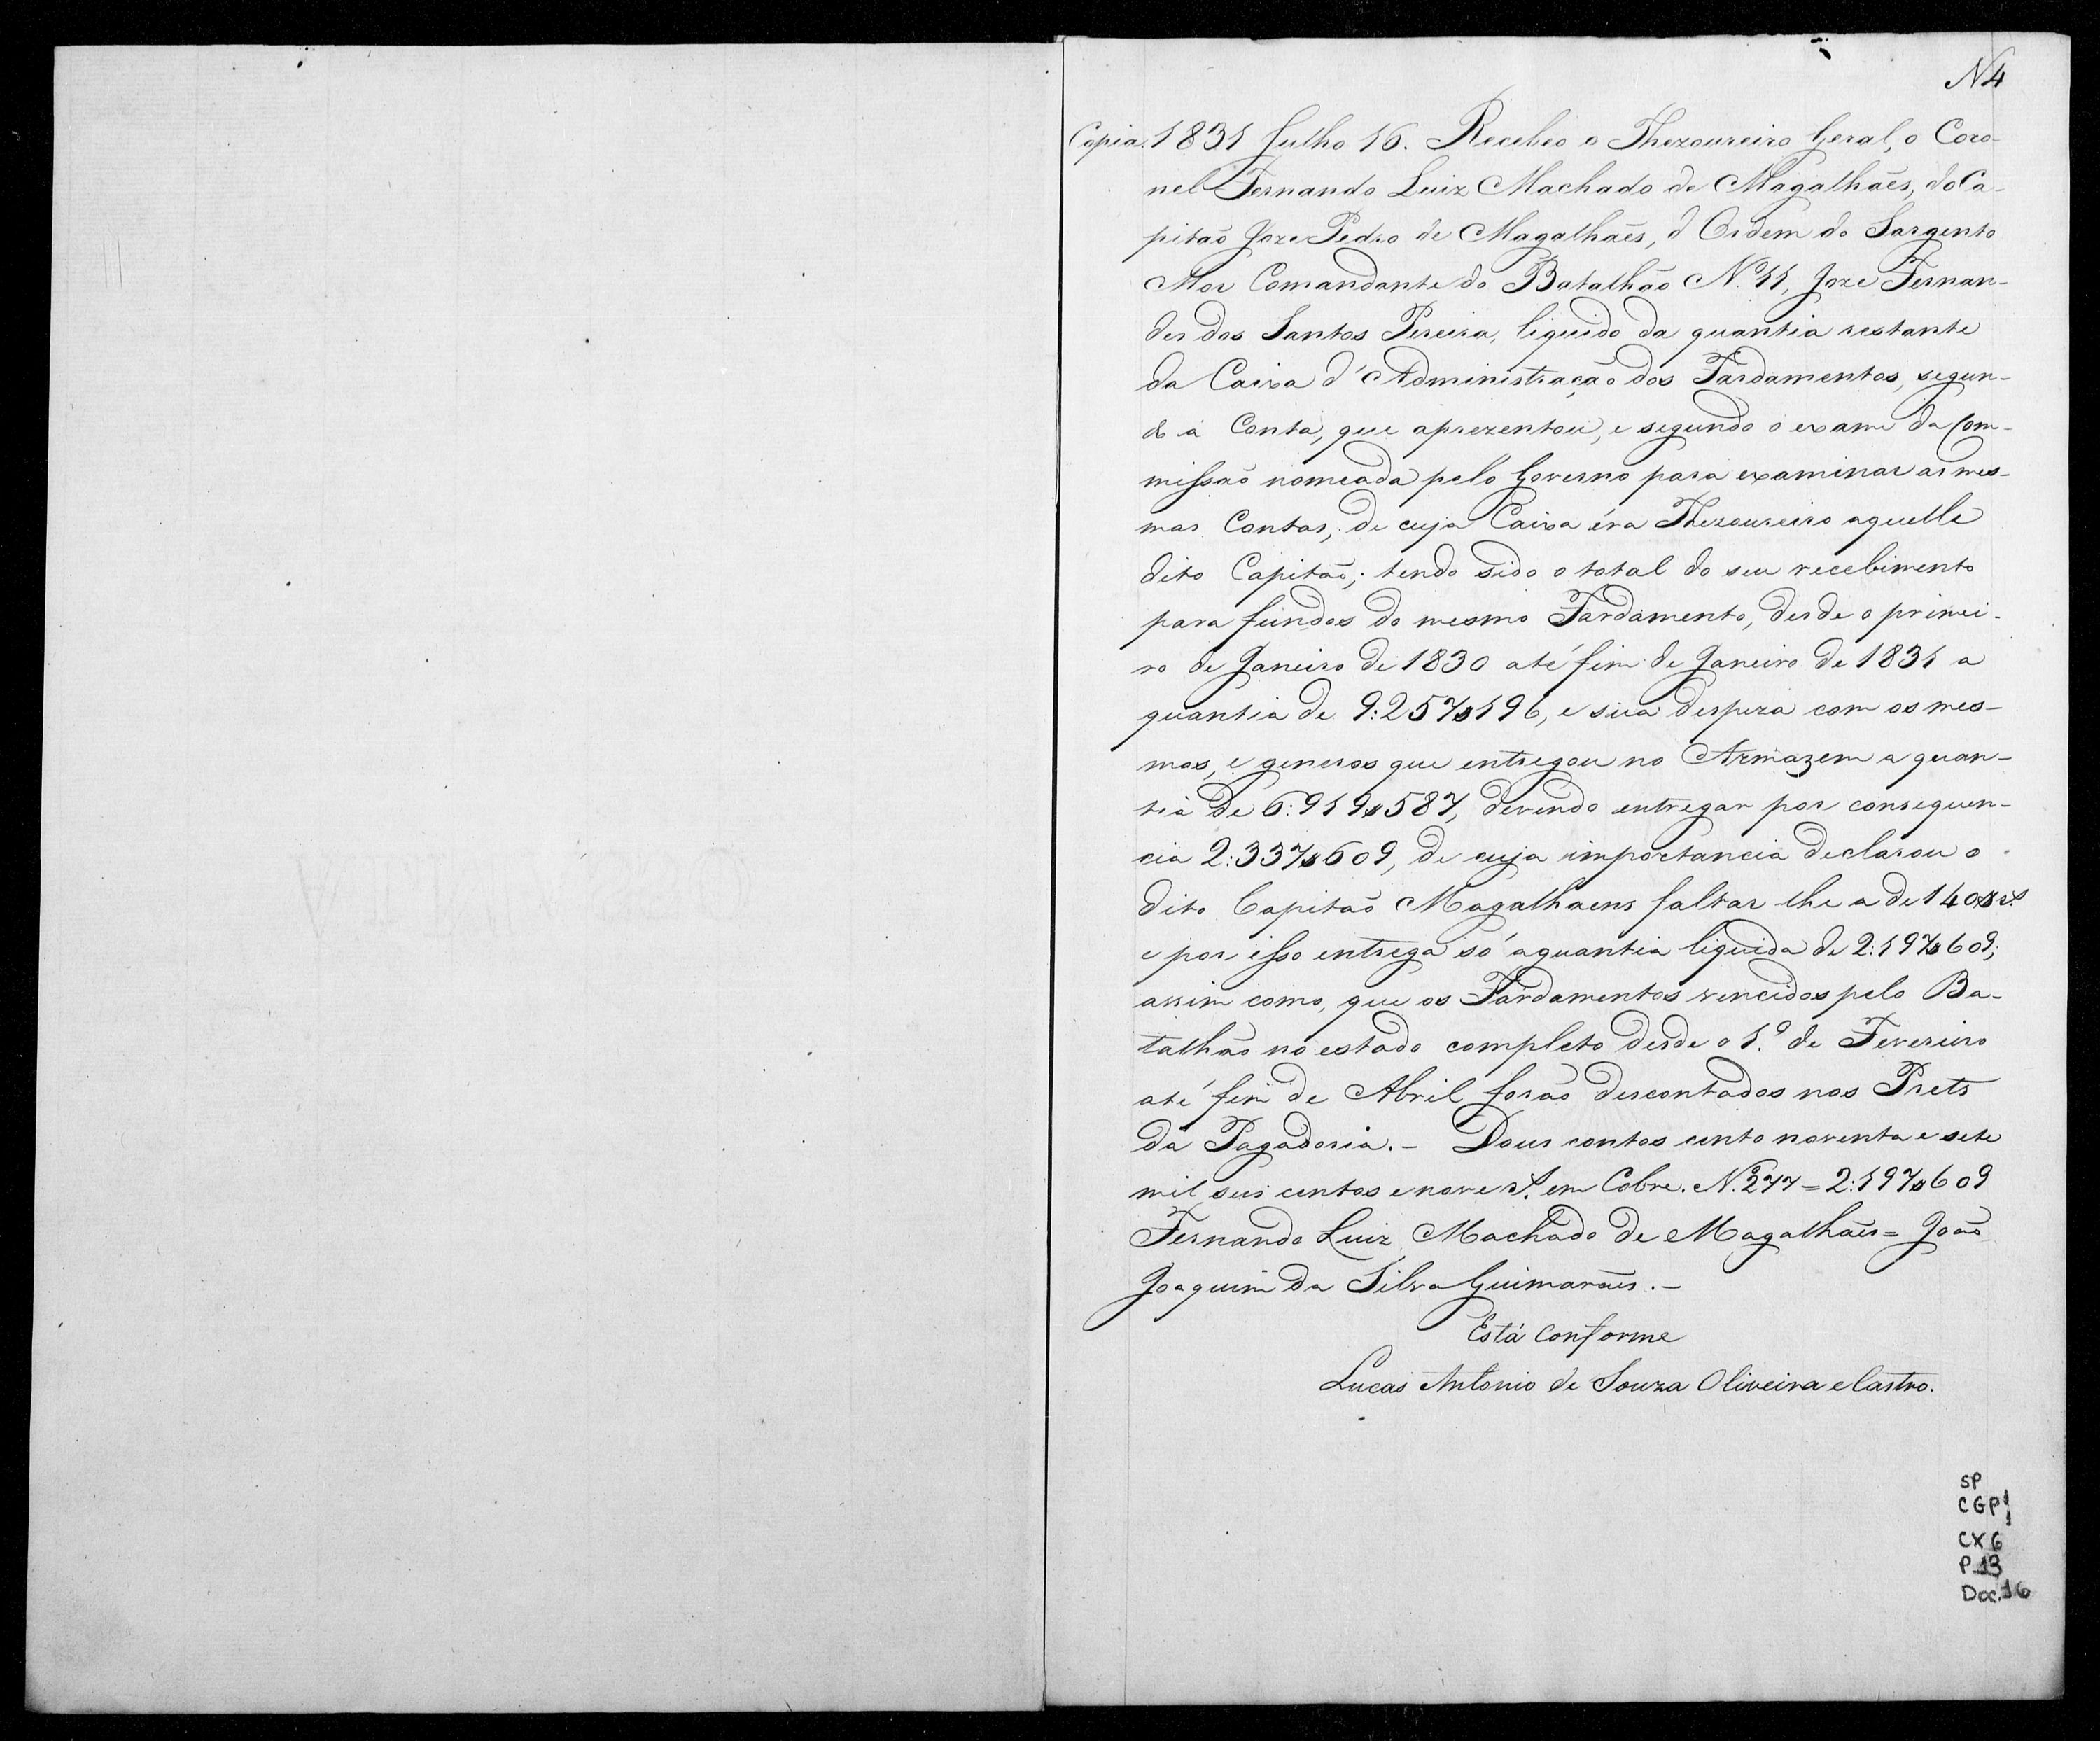 N 4
Copia. 1831 Julho 16. Recebeo o Thezoureiro Geral, o Coro-
nel Fernando Luiz Machado de Magalhães, do Ca-
pitaõ Joze Pedro de Magalhães, d Ordem do Sargento
Mor Comandante do Batalhão N.º 11, Joze Fernan-
des dos Santos Pereira, liquido da quantia restante
da Caixa d'Administração dos Fardamentos, segun-
do a Conta, que aprezentou, e segundo o exame da Com-
missaõ nomeada pelo Governo para examinar as mes-
mas Contas, de cuja Caixa éra Thezoureiro aquelle
dito Capitaõ; tendo sido o total do seu recebimento
para fundos do mesmo Fardamento, desde o primei-
ro de Janeiro de 1830 até fim de Janeiro de 1831 a
quantia de 9:257$196, e sua despeza com os mes-
mos, e generos que entregou no Armazem a quan-
tia de 6:919$587, devendo entregar por consequen-
cia 2:337$609, de cuja importancia declarou o
dito Capitaõ Magalhaens faltar lhe a de 140$ rs.
e por isso entrega só a quantia liquida de 2:197$609;
assim como, que os Fardamentos vencidos pelo Ba-
talhão no estado completo desde o 1.º de Fevereiro
até fim de Abril foraõ descontados nos Prets
da Pagadoria. – Dous contos cento noventa e sete
mil seis centos e nove rs. em Cobre. N.º 277 = 2:197$609
Fernando Luiz Machado de Magalhães = João
Joaquim da Silva Guimarães. –
Está conforme
Lucas Antonio de Souza Oliveira e Castro.
SP
CGP1
CX 6
P. 13
Doc. 16